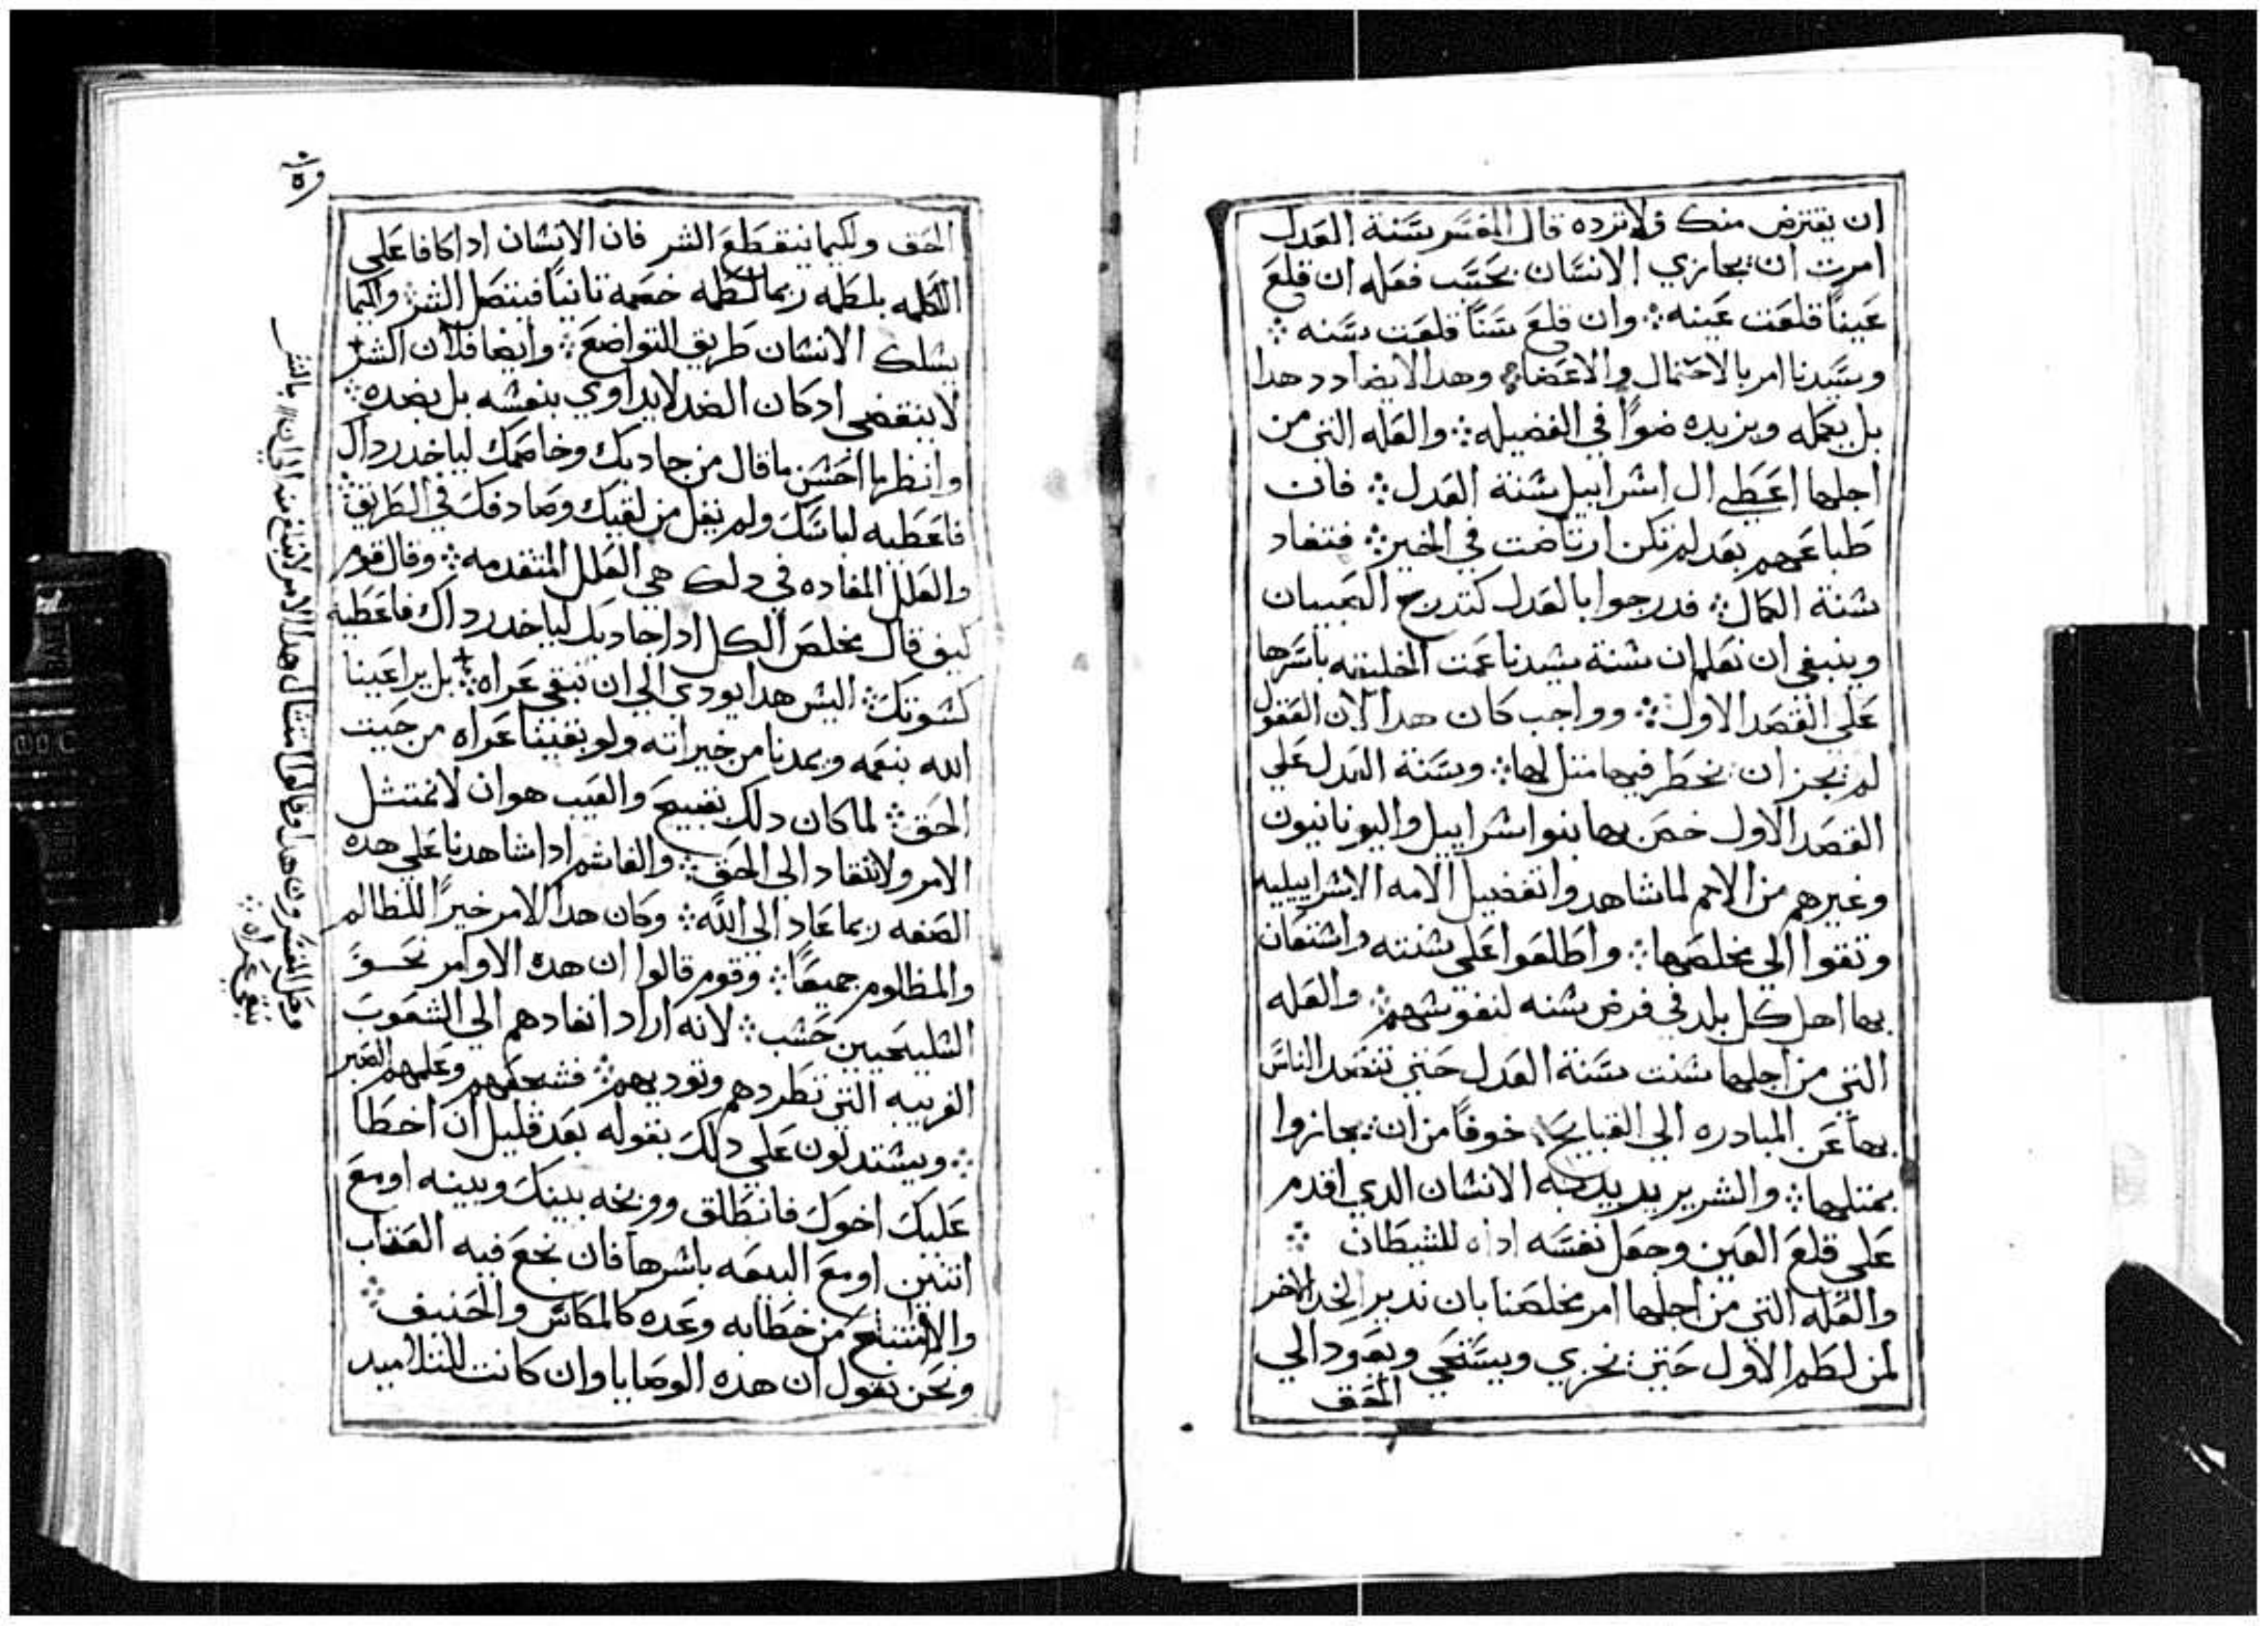 ان يقترض منك فلا ترده قال المفسر سنة العدل
امرت ان يجازي الانسان بحسب فعله ان قلع
عيناً قلعت عينه ܀ وان قلع سناً قلعت سنه ܀
وسيدنا امر بالاحتمال والاغضا ܀ وهدا لا يضادد هدا
بل يكمله ويزيده ضوًا في الفضيله ܀ والعله التي من
اجلها اعطي ال اسراييل سنة العدل ܀ فان
طباعهم بعد لم تكن ارتاضت في الخير ܀ فتنقاد
سنة الكمال ܀ فدرجوا بالعدل كتدرج الصبيان
وينبغي ان نعلم ان سنة سيدنا عمت الخليقه باسرها
علي القصد الاول ܀ وواجب كان هدا لان العقول
لم يجز ان يخطر فيها متل لها ܀ وسنة العدل علي
القصد الاول خص بها بنوا اسراييل واليونانيون
وغيرهم من الامم لما شاهدوا تفضيل الامه الاسراييليه
وتقوا الي مخلصها ܀ واطلعوا علي سنته واستعان
بها اهل كل بلد في فرض سنه لنفوسهم ܀ والعله
التي من اجلها سنت سنة العدل حتي تتصد الناس
بها عن المبادره الي القبايح خوفًا من ان يجازوا
بمتلها ܀ والشرير يريد به الانسان الدي اقدم
علي قلع العين وجعل نفسه اداه للشيطان ܀
والعله التي من اجلها امر مخلصنا بان ندير الخد الاخر
لمن لطم الاول حتي يخزي ويستحي ويعود الي
الحق
الحق ولكيما ينقطع الشر فان الانسان ادا كافا علي
اللكمه بلطمه ربما لطمه خصمه تانياً فيتصل الشر ولكيما
يسلك الانسان طريق التواضع ܀ وايضا فلان الشر
لا ينقضي ادكان الضد لا يداوي بنفسه بل بضده ܀
وانظر ما احسن ما قال من جادبك وخاصمك لياخد رداك
فاعطيه لباسك ولم يقل من لقيك وصادفك في الطريق ܀
والعلل المفاده في دلك هي العلل المتقدمه ܀ وقال قوم
كيف قال مخلص الكل ادا جادبك لياخد رداك فاعطيه
كسوتك ܀ اليس هدا يودي الي ان نبقي عراه ܀ بل يراعينا
الله بنعمه ويمدنا من خيراته ولو بقينا عراه من حيت
الحق ܀ لما كان دلك بقبيح والعيب هو ان لا نمتتل
الامر ولا ننقاد الي الحق ܀ والغاشم ادا شاهدنا علي هده
الصفه ربما عاد الي الله ܀ وكان هدا الامر خيرًا للظالم
والمظلوم جميعًا ܀ وقوم قالوا ان هده الاوامر نحو
السليحيين حسب ܀ لانه اراد انفادهم الي الشعوب
الغريبه التي تطردهم وتوديهم ܀ فشجعهم وعلمهم الصبر
܀ ويستدلون علي دلك بقوله بعد قليل ان اخطا
عليك اخوك فانطلق ووبخه بينك وبينه او مع
اتنين او مع البيعه باسرها فان نجع فيه العتاب
والا امتنع من خطابه وعده كالمكاس والحنيف ܀
ونحن نقول ان هده الوصايا وان كانت للتلاميد
وقال المفسرون هدا وقالوا امتتال هدا الامر لا يبلغ منه الي ان
نبقي عراه ܀